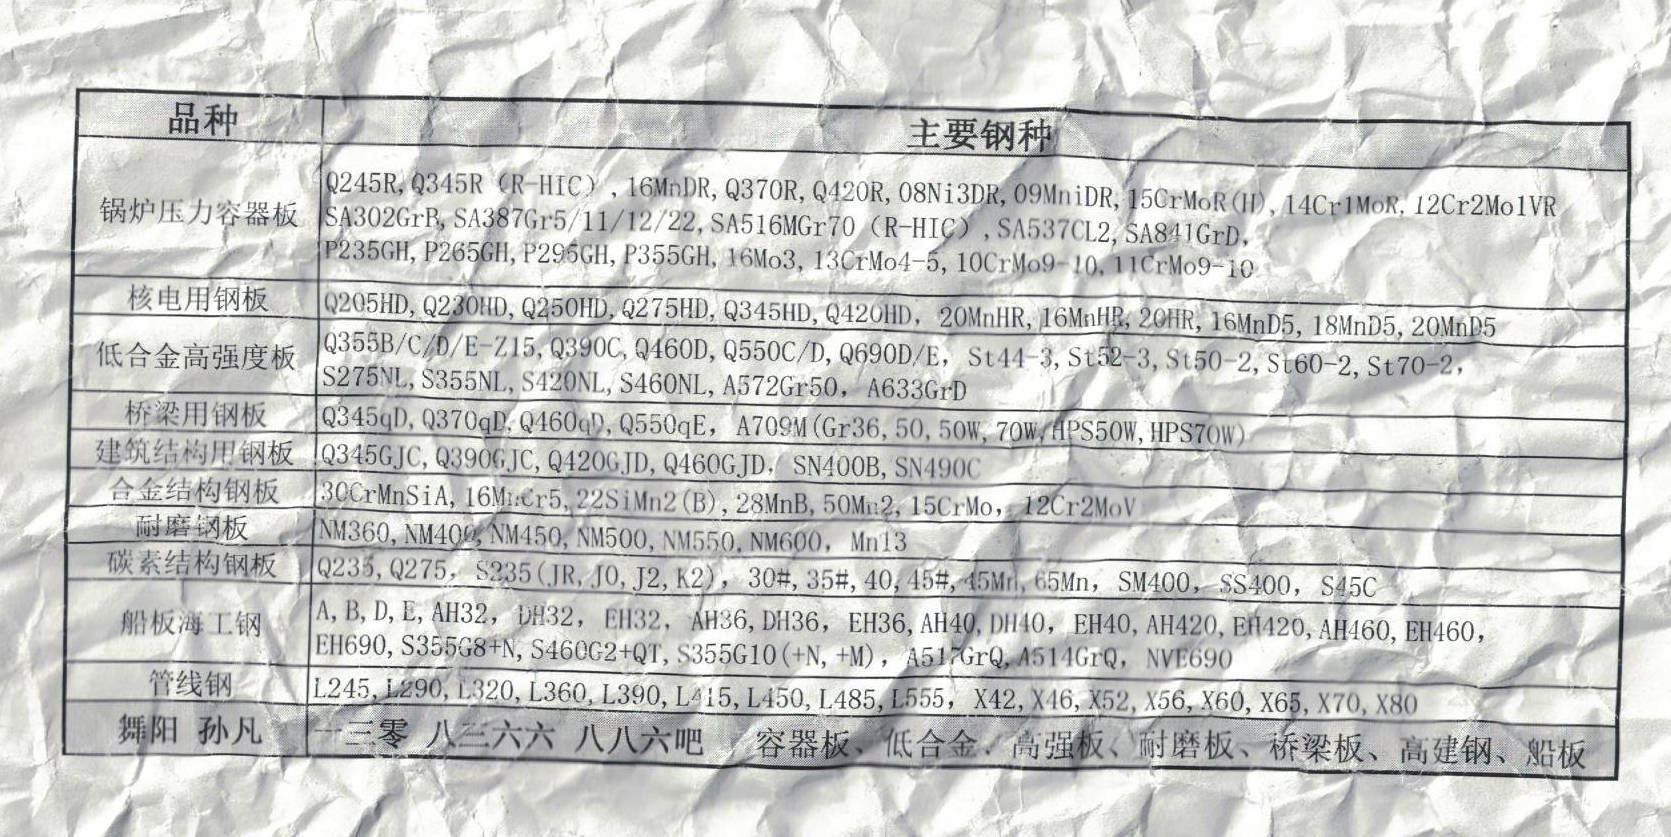 品种 主要钢种
锅炉压力容器板
Q245R, Q345R（R-HIC）, 16MnDR, Q370R, Q420R, 08Ni3DR, 09MniDR, 15CrMoR(H), 14Cr1MoR, 12Cr2Mo1VR
SA302GrB, SA387Gr5/11/12/22, SA516MGr70（R-HIC）, SA537CL2, SA841GrD,
P235GH, P265GH, P295GH, P355GH, 16Mo3, 13CrMo4-5, 10CrMo9-10, 11CrMo9-10
核电用钢板 Q205HD, Q230HD, Q250HD, Q275HD, Q345HD, Q420HD, 20MnHR, 16MnHR, 20HR, 16MnD5, 18MnD5, 20MnD5
低合金高强度板
Q355B/C/D/E-Z15, Q390C, Q460D, Q550C/D, Q690D/E, St44-3, St52-3, St50-2, St60-2, St70-2,
S275NL, S355NL, S420NL, S460NL, A572Gr50, A633GrD
桥梁用钢板 Q345qD, Q370qD, Q460qD, Q550qE, A709M(Gr36, 50, 50W, 70W, HPS50W, HPS70W)
建筑结构用钢板 Q345GJC, Q390GJC, Q420GJD, Q460GJD, SN400B, SN490C
合金结构钢板 30CrMnSiA, 16MnCr5, 22SiMn2(B), 28MnB, 50Mn2, 15CrMo, 12Cr2MoV
耐磨钢板 NM360, NM400, NM450, NM500, NM550, NM600, Mn13
碳素结构钢板 Q235, Q275, S235(JR, J0, J2, K2), 30#, 35#, 40, 45#, 45Mn, 65Mn, SM400, SS400, S45C
船板海工钢
A, B, D, E, AH32, DH32, EH32, AH36, DH36, EH36, AH40, DH40, EH40, AH420, EH420, AH460, EH460,
EH690, S355G8+N, S460G2+QT, S355G10(+N, +M), A517GrQ, A514GrQ, NVE690
管线钢 L245, L290, L320, L360, L390, L415, L450, L485, L555, X42, X46, X52, X56, X60, X65, X70, X80
舞阳 孙凡 一三零 八三六六 八八六吧 容器板、低合金、高强板、耐磨板、桥梁板、高建钢、船板